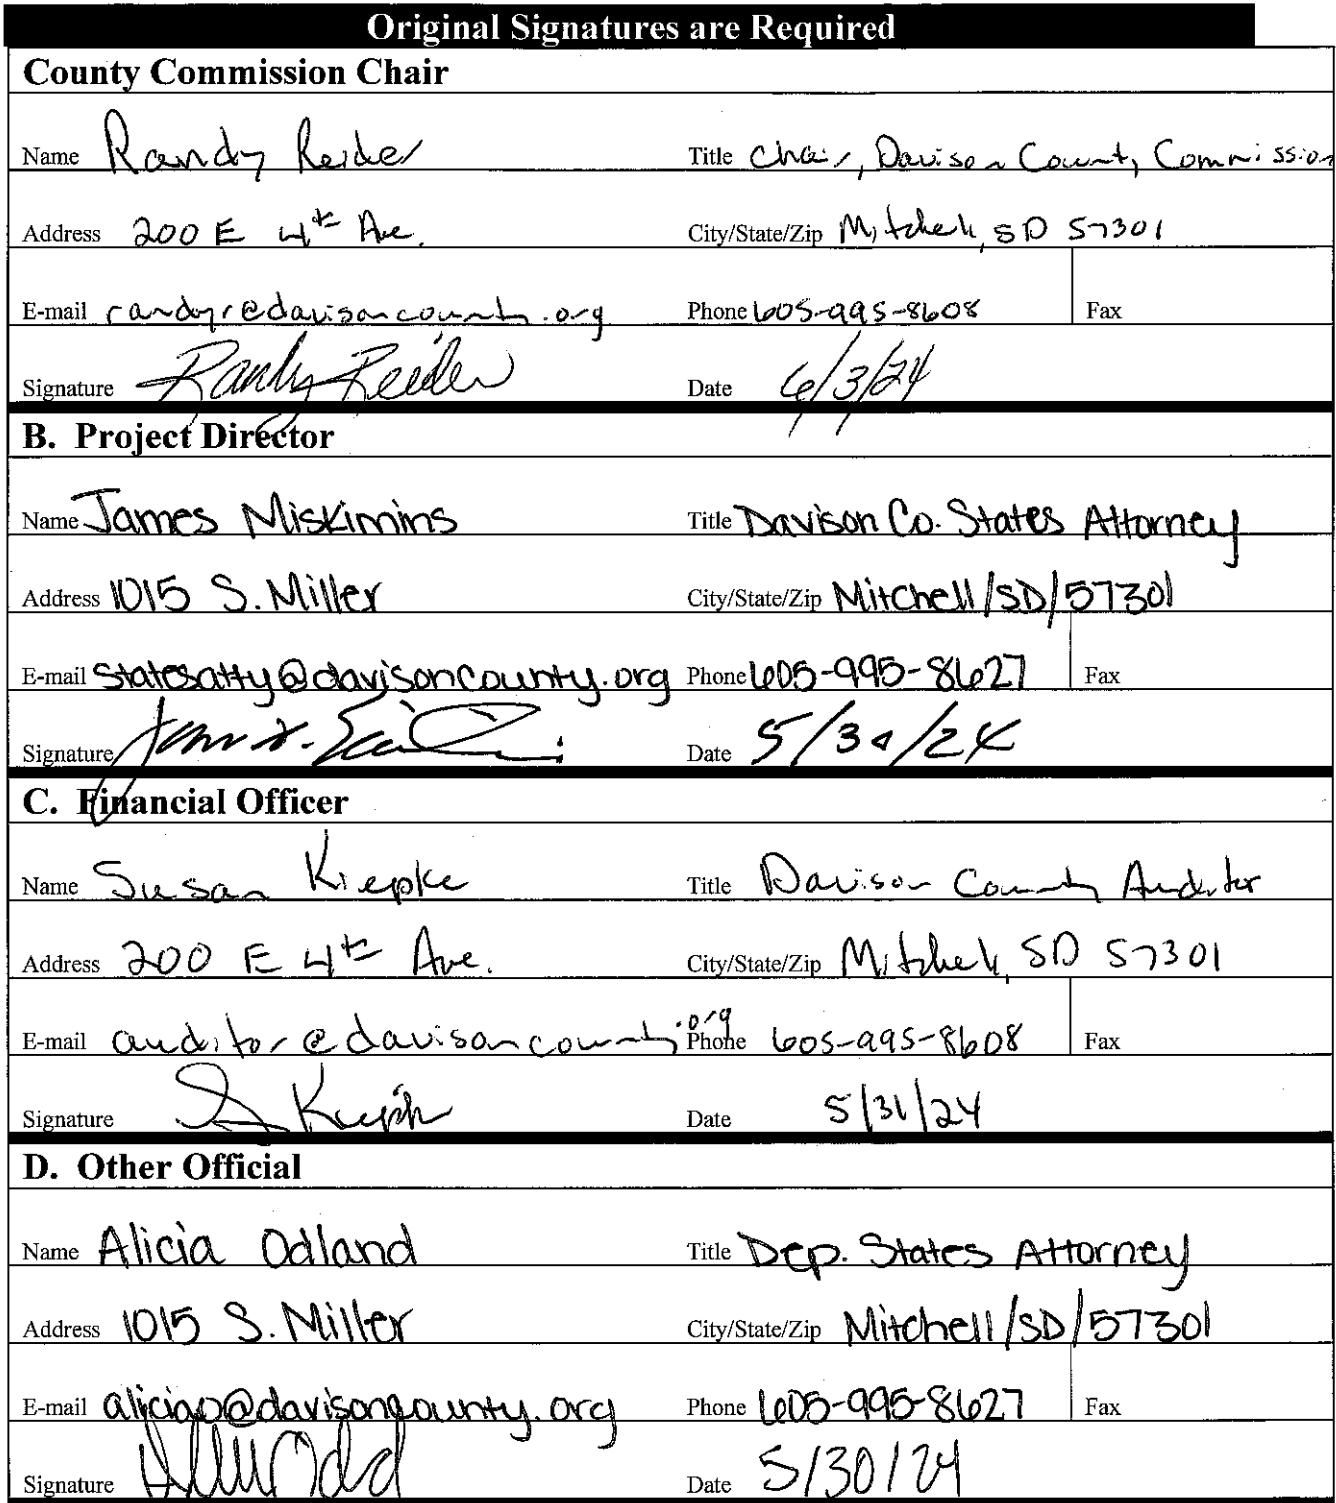 Original Signatures are Required
County Commission Chair
Name Randy Reider Title Chair, Davison County Commission
Address 200 E 4th Ave. City/State/Zip Mitchell, SD 57301
E-mail randyr@davisoncounty.org Phone 605-995-8608 Fax
Signature Randy Reider Date 6/3/24
B. Project Director
Name James Miskimins Title Davison Co. States Attorney
Address 1015 S. Miller City/State/Zip Mitchell/SD/57301
E-mail statesatty@davisoncounty.org Phone 605-995-8627 Fax
Signature Date 5/30/24
C. Financial Officer
Name Susan Kiepke Title Davison County Auditor
Address 200 E 4th Ave. City/State/Zip Mitchell, SD 57301
E-mail auditor@davisoncounty.org Phone 605-995-8608 Fax
Signature S Kiepke Date 5/31/24
D. Other Official
Name Alicia Odland Title Dep. States Attorney
Address 1015 S. Miller City/State/Zip Mitchell/SD/57301
E-mail aliciao@davisoncounty.org Phone 605-995-8627 Fax
Signature Date 5/30/24